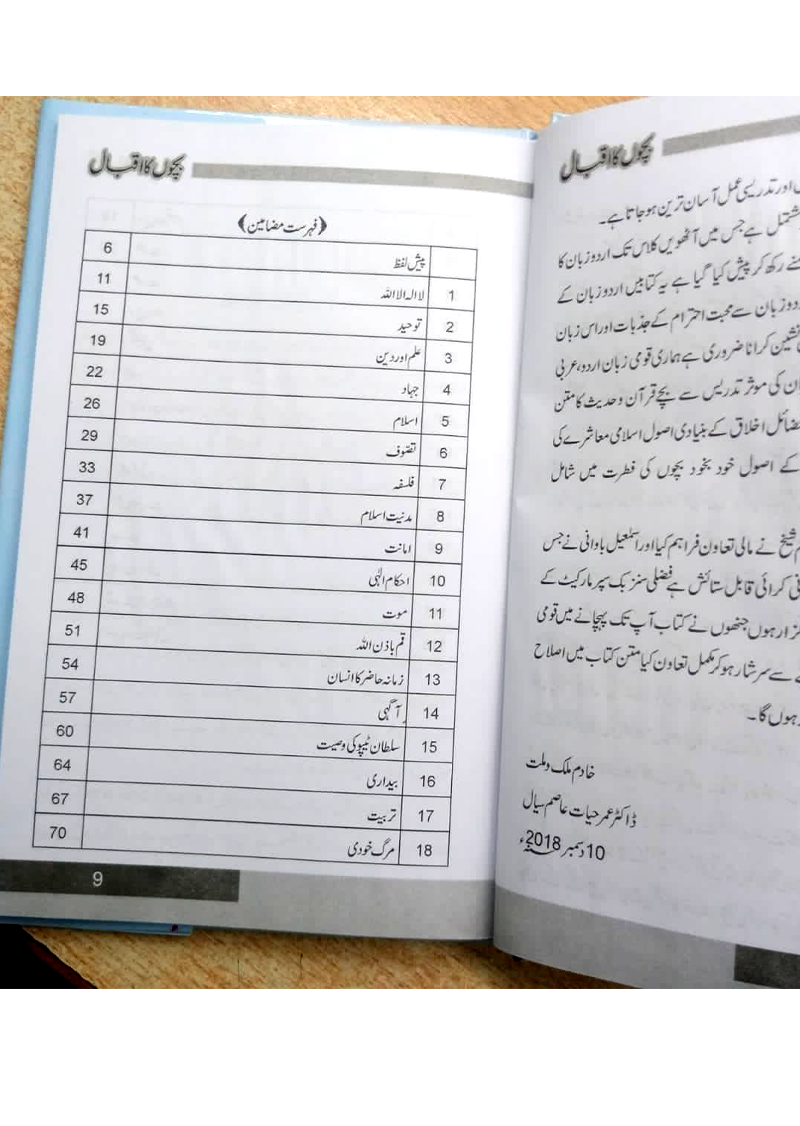 بچوں کا اقبال
اور تدریسی عمل آسان ترین ہو جاتا ہے۔
مشتمل ہے جس میں آٹھویں کلاس تک اردو زبان کا
رکھ کر پیش کیا گیا ہے یہ کتابیں اردو زبان کے
زبان سے محبت احترام کے جذبات اور اس زبان
نشین کرانا ضروری ہے ہماری قومی زبان اردو، عربی
کی موثر تدریس سے بچے قرآن و حدیث کا متن
اخلاق کے بنیادی اصول اسلامی معاشرے کی
کے اصول خود بخود بچوں کی فطرت میں شامل
شیخ نے مالی تعاون فراہم کیا اور اسمٰعیل باوانی نے جس
کرائی قابل ستائش ہے فضلی سنز بک سپر مارکیٹ کے
ہوں جنھوں نے کتاب آپ تک پہچانے میں قومی
سے سرشار ہو کر مکمل تعاون کیا متن کتاب میں اصلاح
ہوں گا۔
خادم ملک و ملت
ڈاکٹر عمر حیات عاصم سیال
10 دسمبر 2018ء
بچوں کا اقبال
﴿فہرست مضامین﴾
پیش لفظ 6
1 لا الہ الا اللہ 11
2 توحید 15
3 علم اور دین 19
4 جہاد 22
5 اسلام 26
6 تصوّف 29
7 فلسفہ 33
8 مدنیت اسلام 37
9 امانت 41
10 احکام الٰہی 45
11 موت 48
12 قم باذن اللہ 51
13 زمانہ حاضر کا انسان 54
14 آگہی 57
15 سلطان ٹیپو کی وصیت 60
16 بیداری 64
17 تربیت 67
18 مرگ خودی 70
9